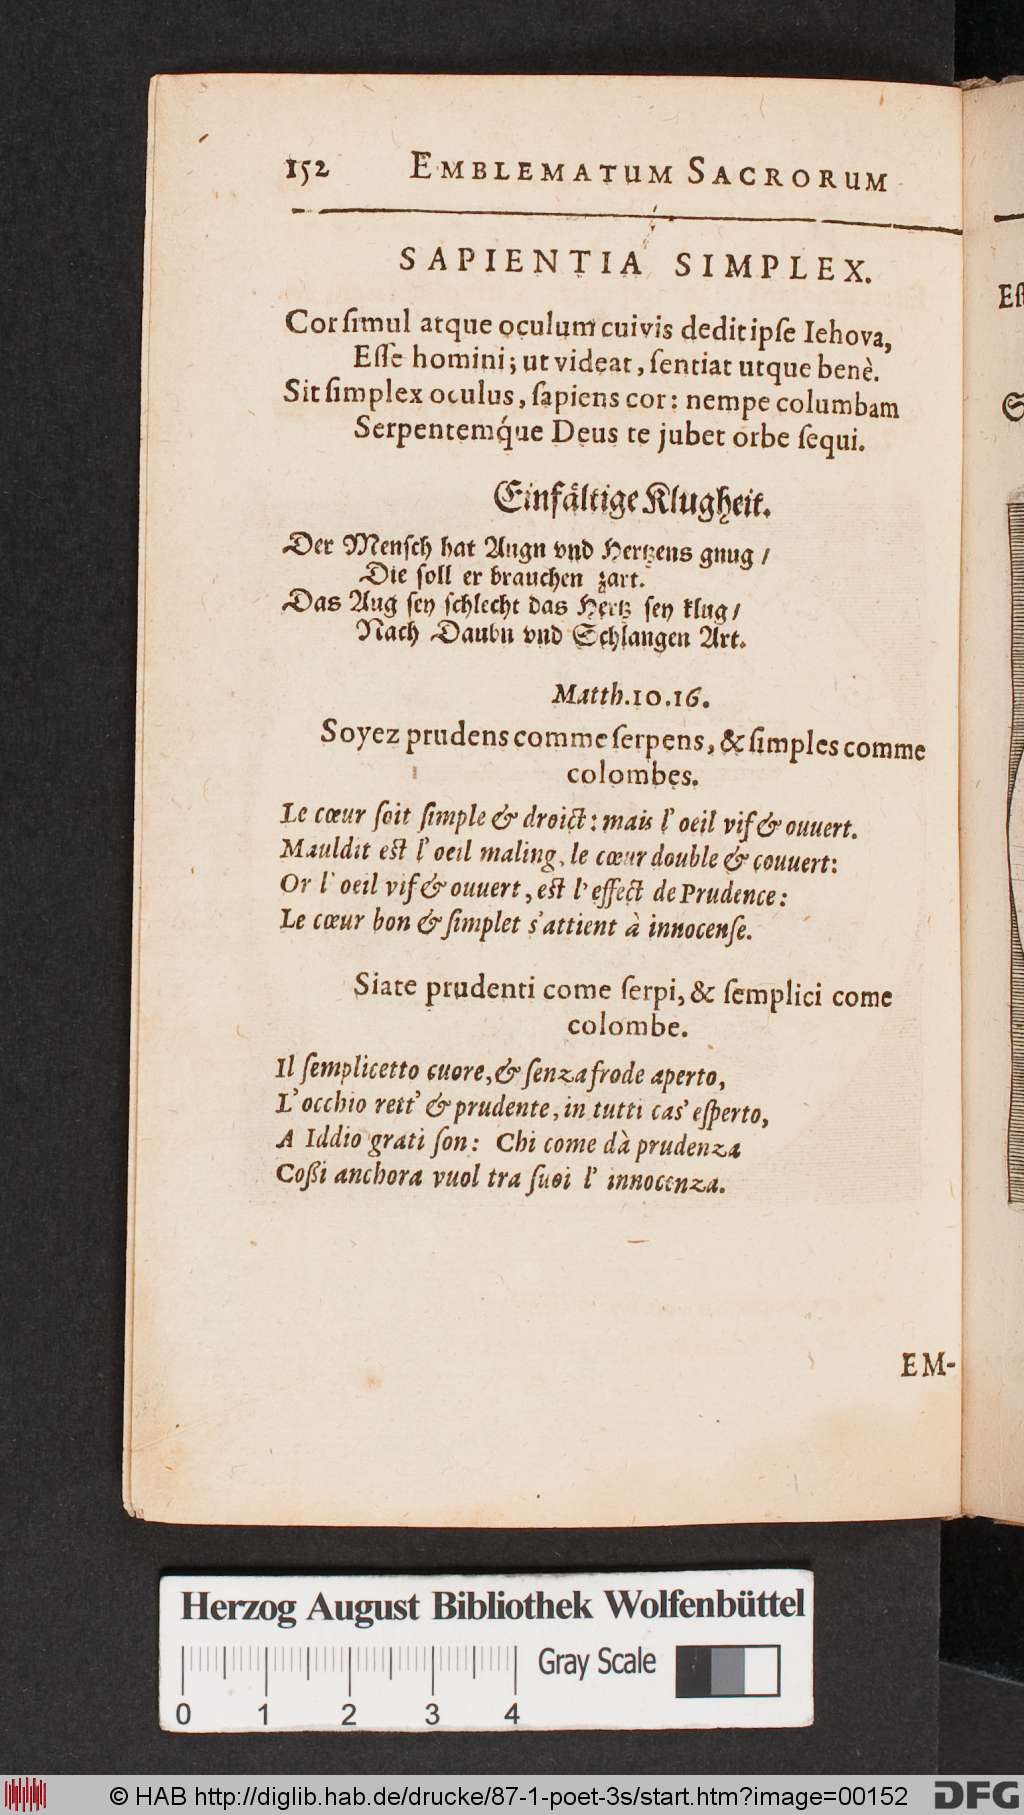 152 EMBLEMATUM SACRORUM
SAPIENTIA SIMPLEX.
Cor ſimul atque oculum cuivis dedit ipſe Iehova,
Eſſe homini; ut videat, ſentiat utque benè.
Sit ſimplex oculus, ſapiens cor: nempe columbam
Serpentemq́ue Deus te jubet orbe ſequi.
Einfältige Klugheit.
Der Menſch hat Augn vnd Hertzens gnug /
Die ſoll er brauchen zart.
Das Aug ſey ſchlecht das Hertz ſey klug /
Nach Daubn vnd Schlangen Art.
Matth. 10. 16.
Soyez prudens comme ſerpens, & ſimples comme
colombes.
Le cœur ſoit ſimple & droict: mais l'oeil vif & ouuert.
Mauldit eſt l'oeil maling, le cœur double & couuert:
Or l'oeil vif & ouuert, eſt l'effect de Prudence:
Le cœur bon & ſimplet s'attient à innocenſe.
Siate prudenti come ſerpi, & ſemplici come
colombe.
Il ſemplicetto cuore, & ſenza frode aperto,
L'occhio rett' & prudente, in tutti cas' eſperto,
A Iddio grati ſon: Chi come dà prudenza
Coßi anchora vuol tra ſuoi l'innocenza.
EM-
Eſt
S
Herzog August Bibliothek Wolfenbüttel
Gray Scale
0 1 2 3 4
© HAB http://diglib.hab.de/drucke/87-1-poet-3s/start.htm?image=00152
DFG